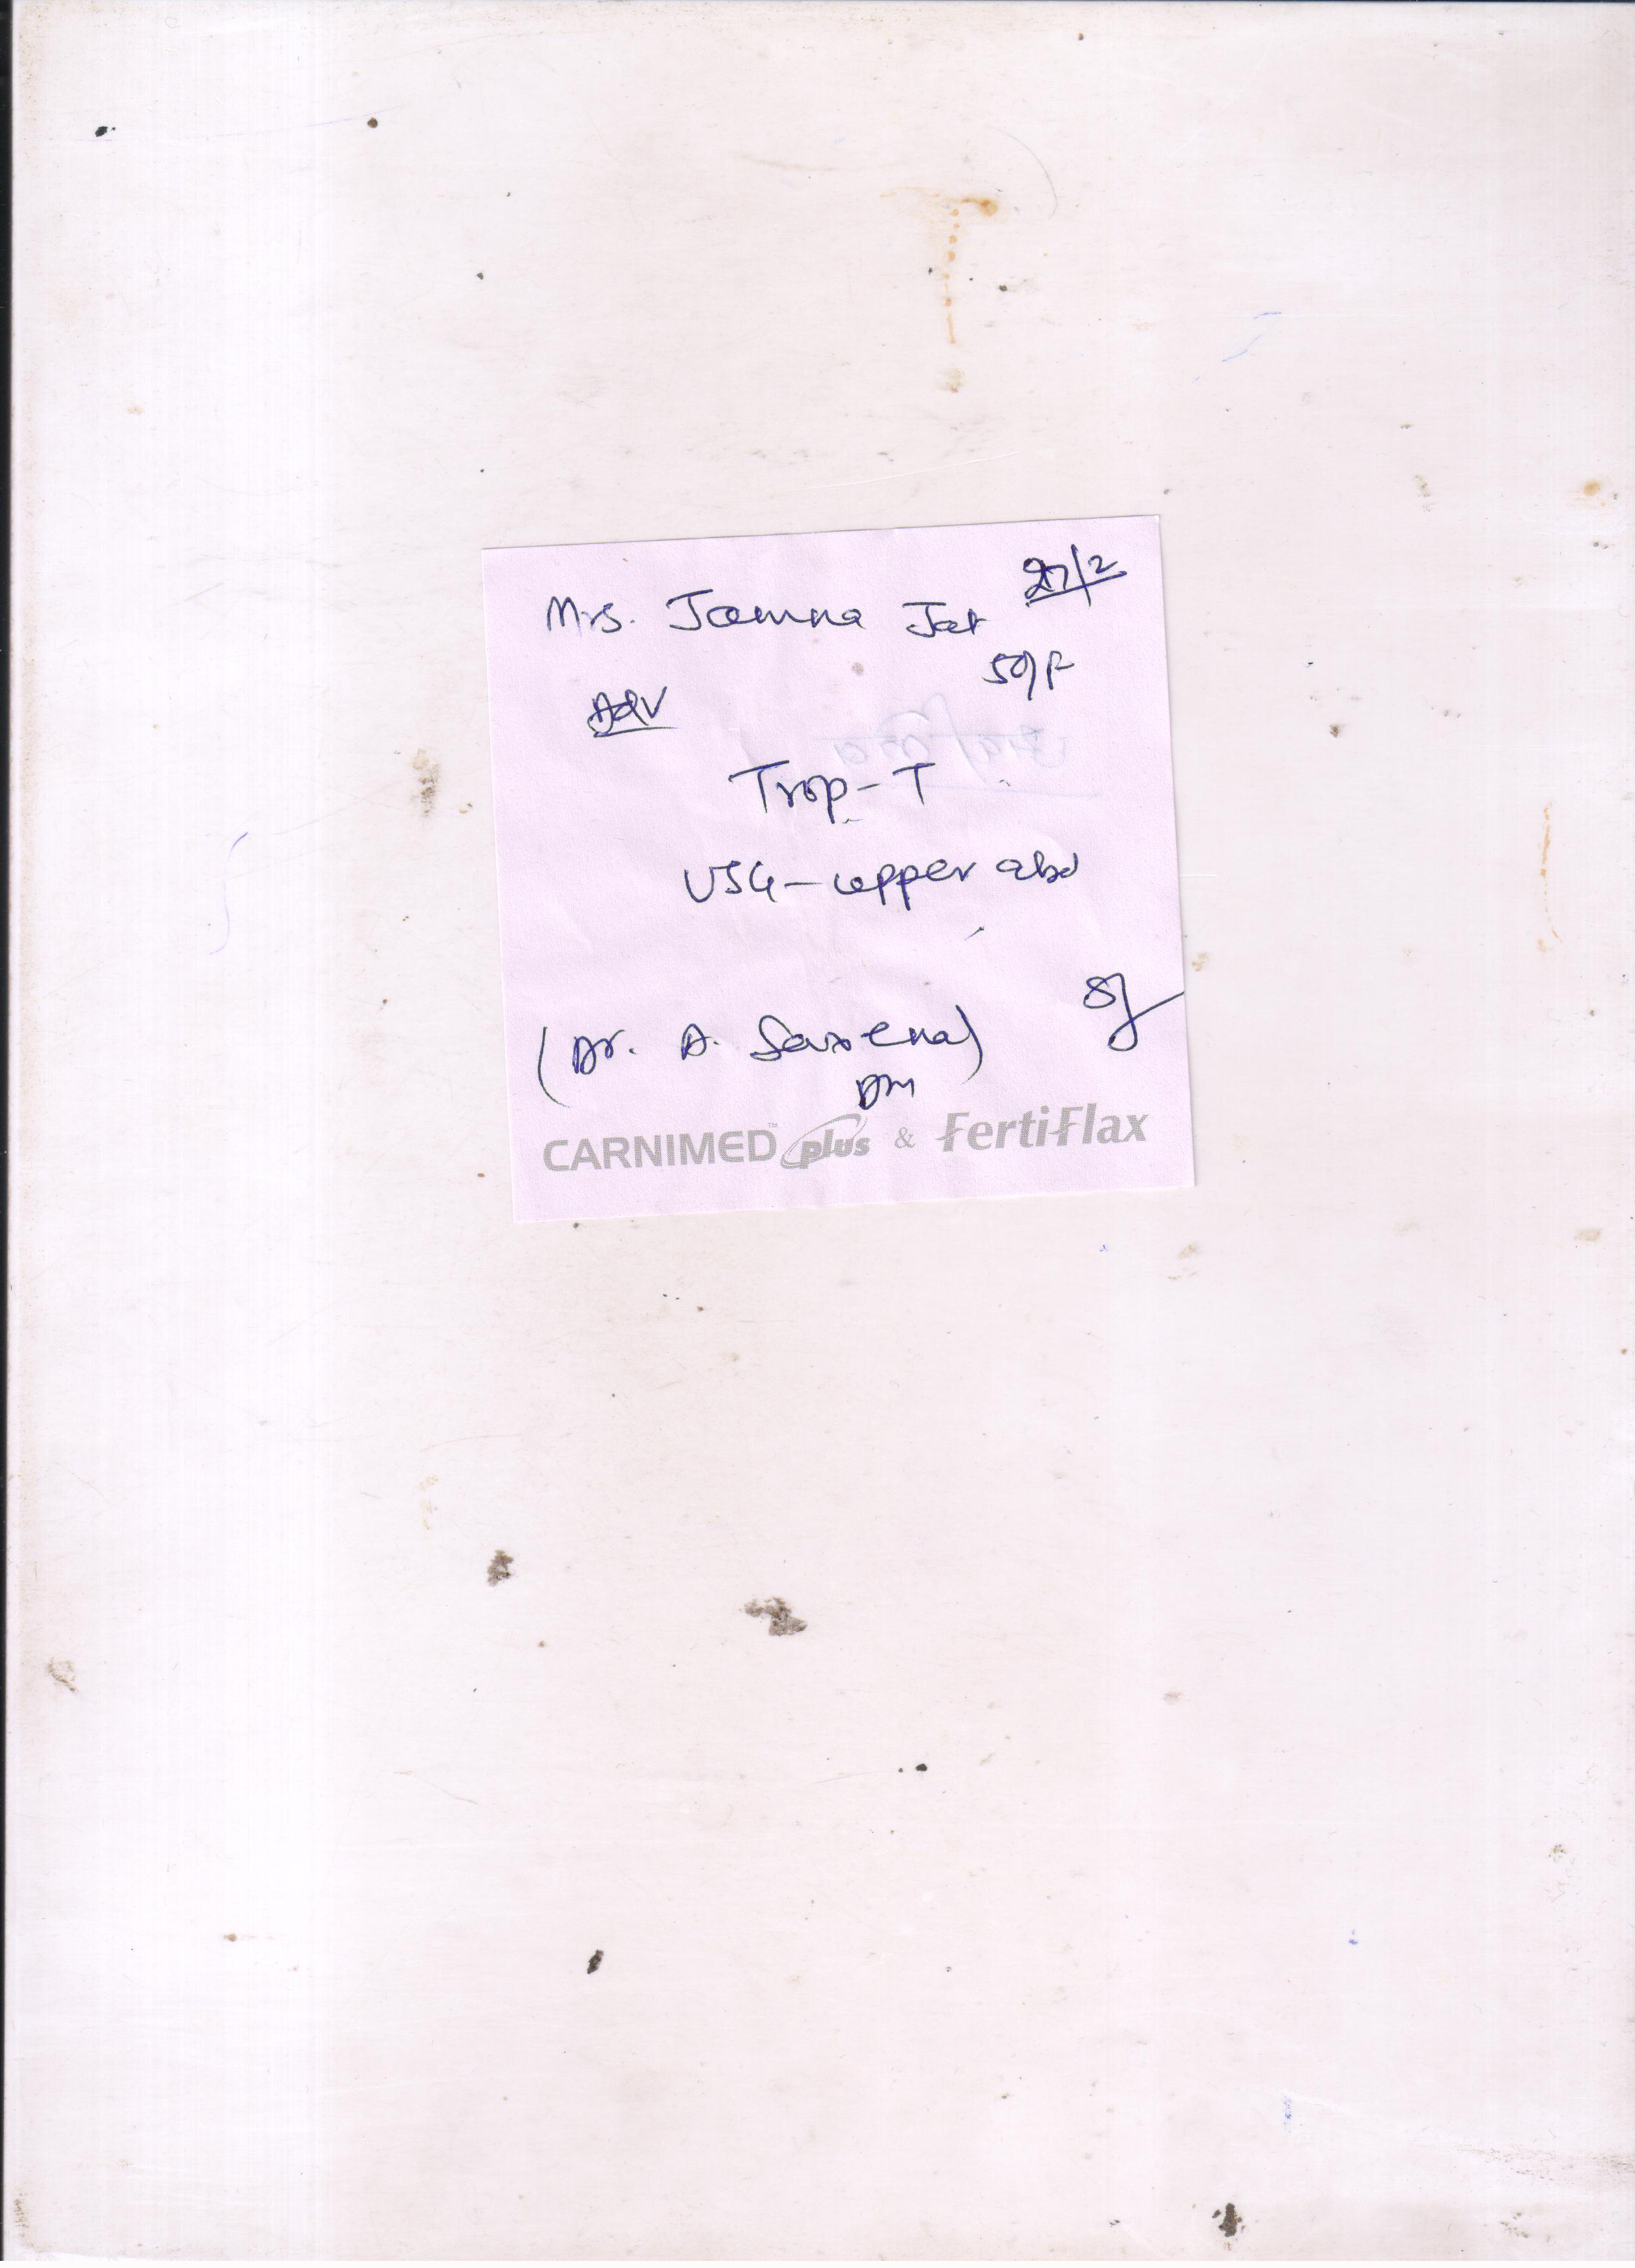 27/2
Mrs. Jamna Jat
50/F
Adv
Trop-T
USG-upper abd
(Dr. A. Saxena)
DM
CARNIMED™ plus & FertiFlax